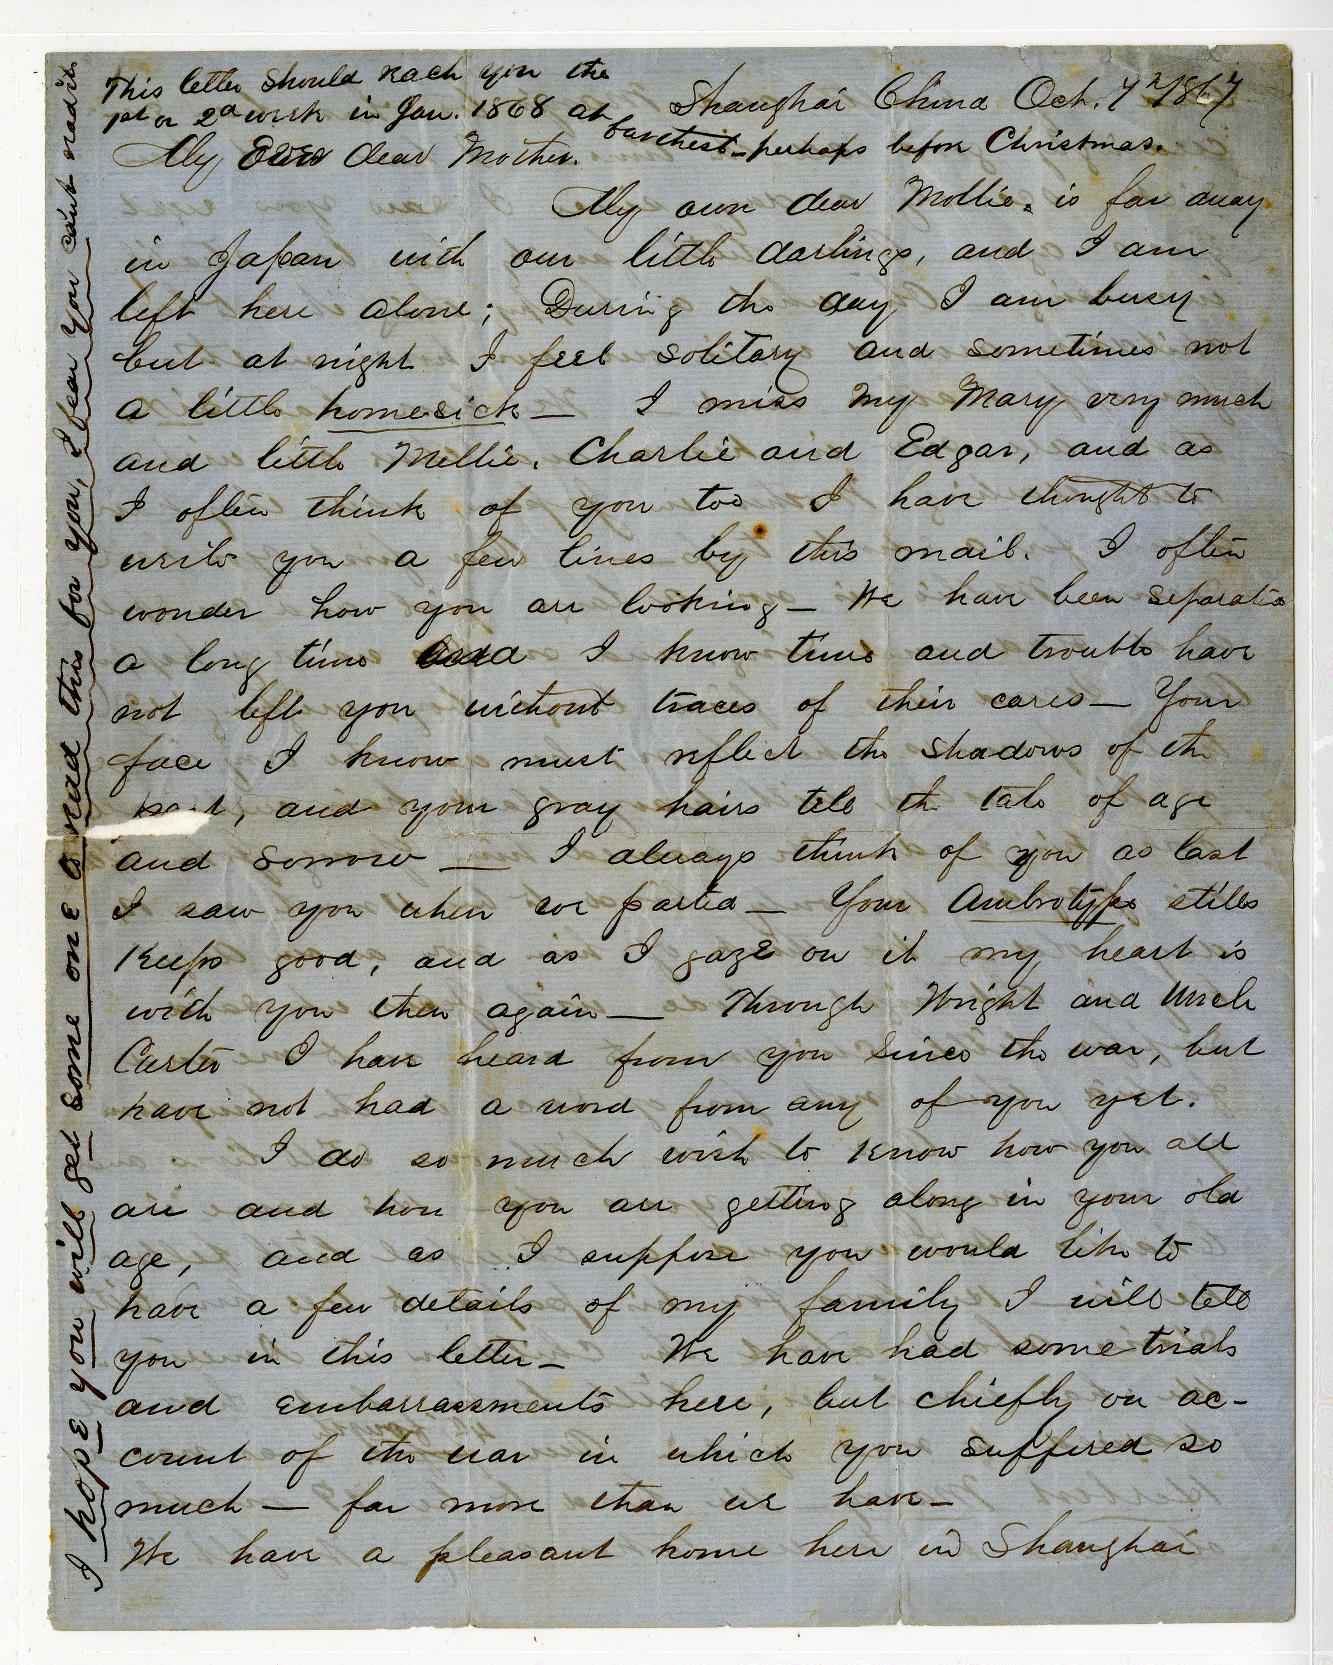 This letter should reach you the
1st or 2d week in Jan. 1868 at
farthest - perhaps before Christmas.
Shanghai China Oct. 7th 1867
My Own dear Mother.
My own dear Mollie. is far away
in Japan with our little darlings, and I am
left here alone; During the day I am busy
but at night I feel solitary and sometimes not
a little homesick — I miss my Mary very much
and little Mellie. Charlie and Edgar, and as
I often think of you too I have thought to
write you a few lines by this mail. I often
wonder how you are looking — We have been separated
a long time and I know time and trouble have
not left you without traces of their cares — Your
face I know must reflect the shadows of the
past, and your gray hairs tell the tale of age
and sorrow — I always think of you as last
I saw you when we parted — Your Ambrotype still
keeps good, and as I gaze on it my heart is
with you then again — Through Wright and Uncle
Carter I have heard from you since the war, but
have not had a word from any of you yet.
I do so much wish to know how you all
are and how you are getting along in your old
age, and as I suppose you would like to
have a few details of my family I will tell
you in this letter — We have had some trials
and embarrassments here, but chiefly on ac-
count of the war in which you suffered so
much — far more than we have —
We have a pleasant home here in Shanghai
I hope you will get some one to read this for you, I fear you can't read it